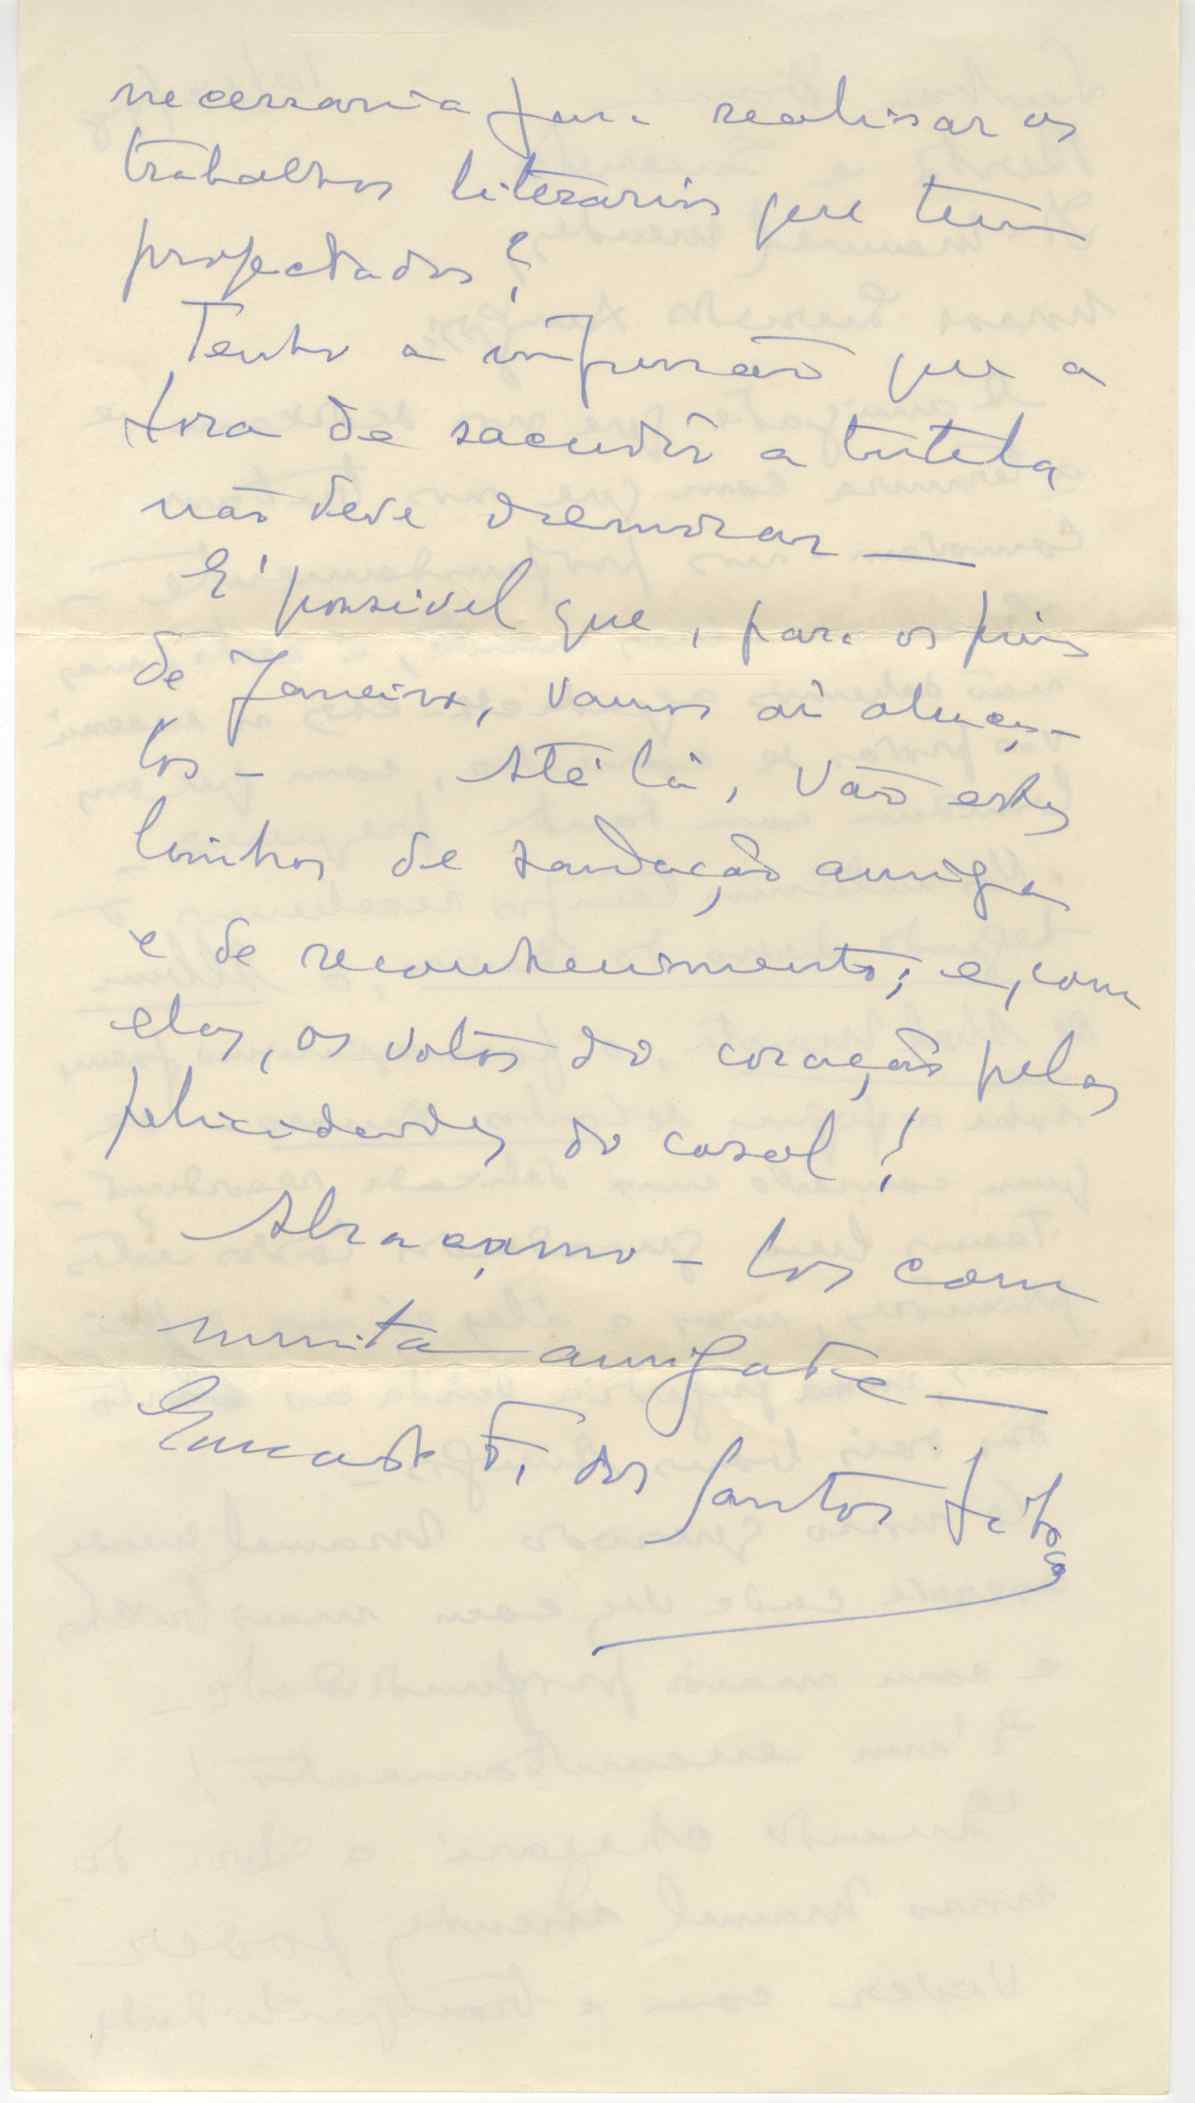 necessaria para realisar os
trabalhos literarios que tem
projectados?
Tenho a impressão que a
hora de sacudir a tutela
não deve demorar —
E' possivel que, para os fins
de Janeiro, vamos aí abraça-
los – Até lá, vão estas
linhas de saudação amiga
e de reconhecimento; e, com
elas, os votos do coração pelas
felicidades do casal!
Abraçamo-los com
muita amizade —
F. dos Santos